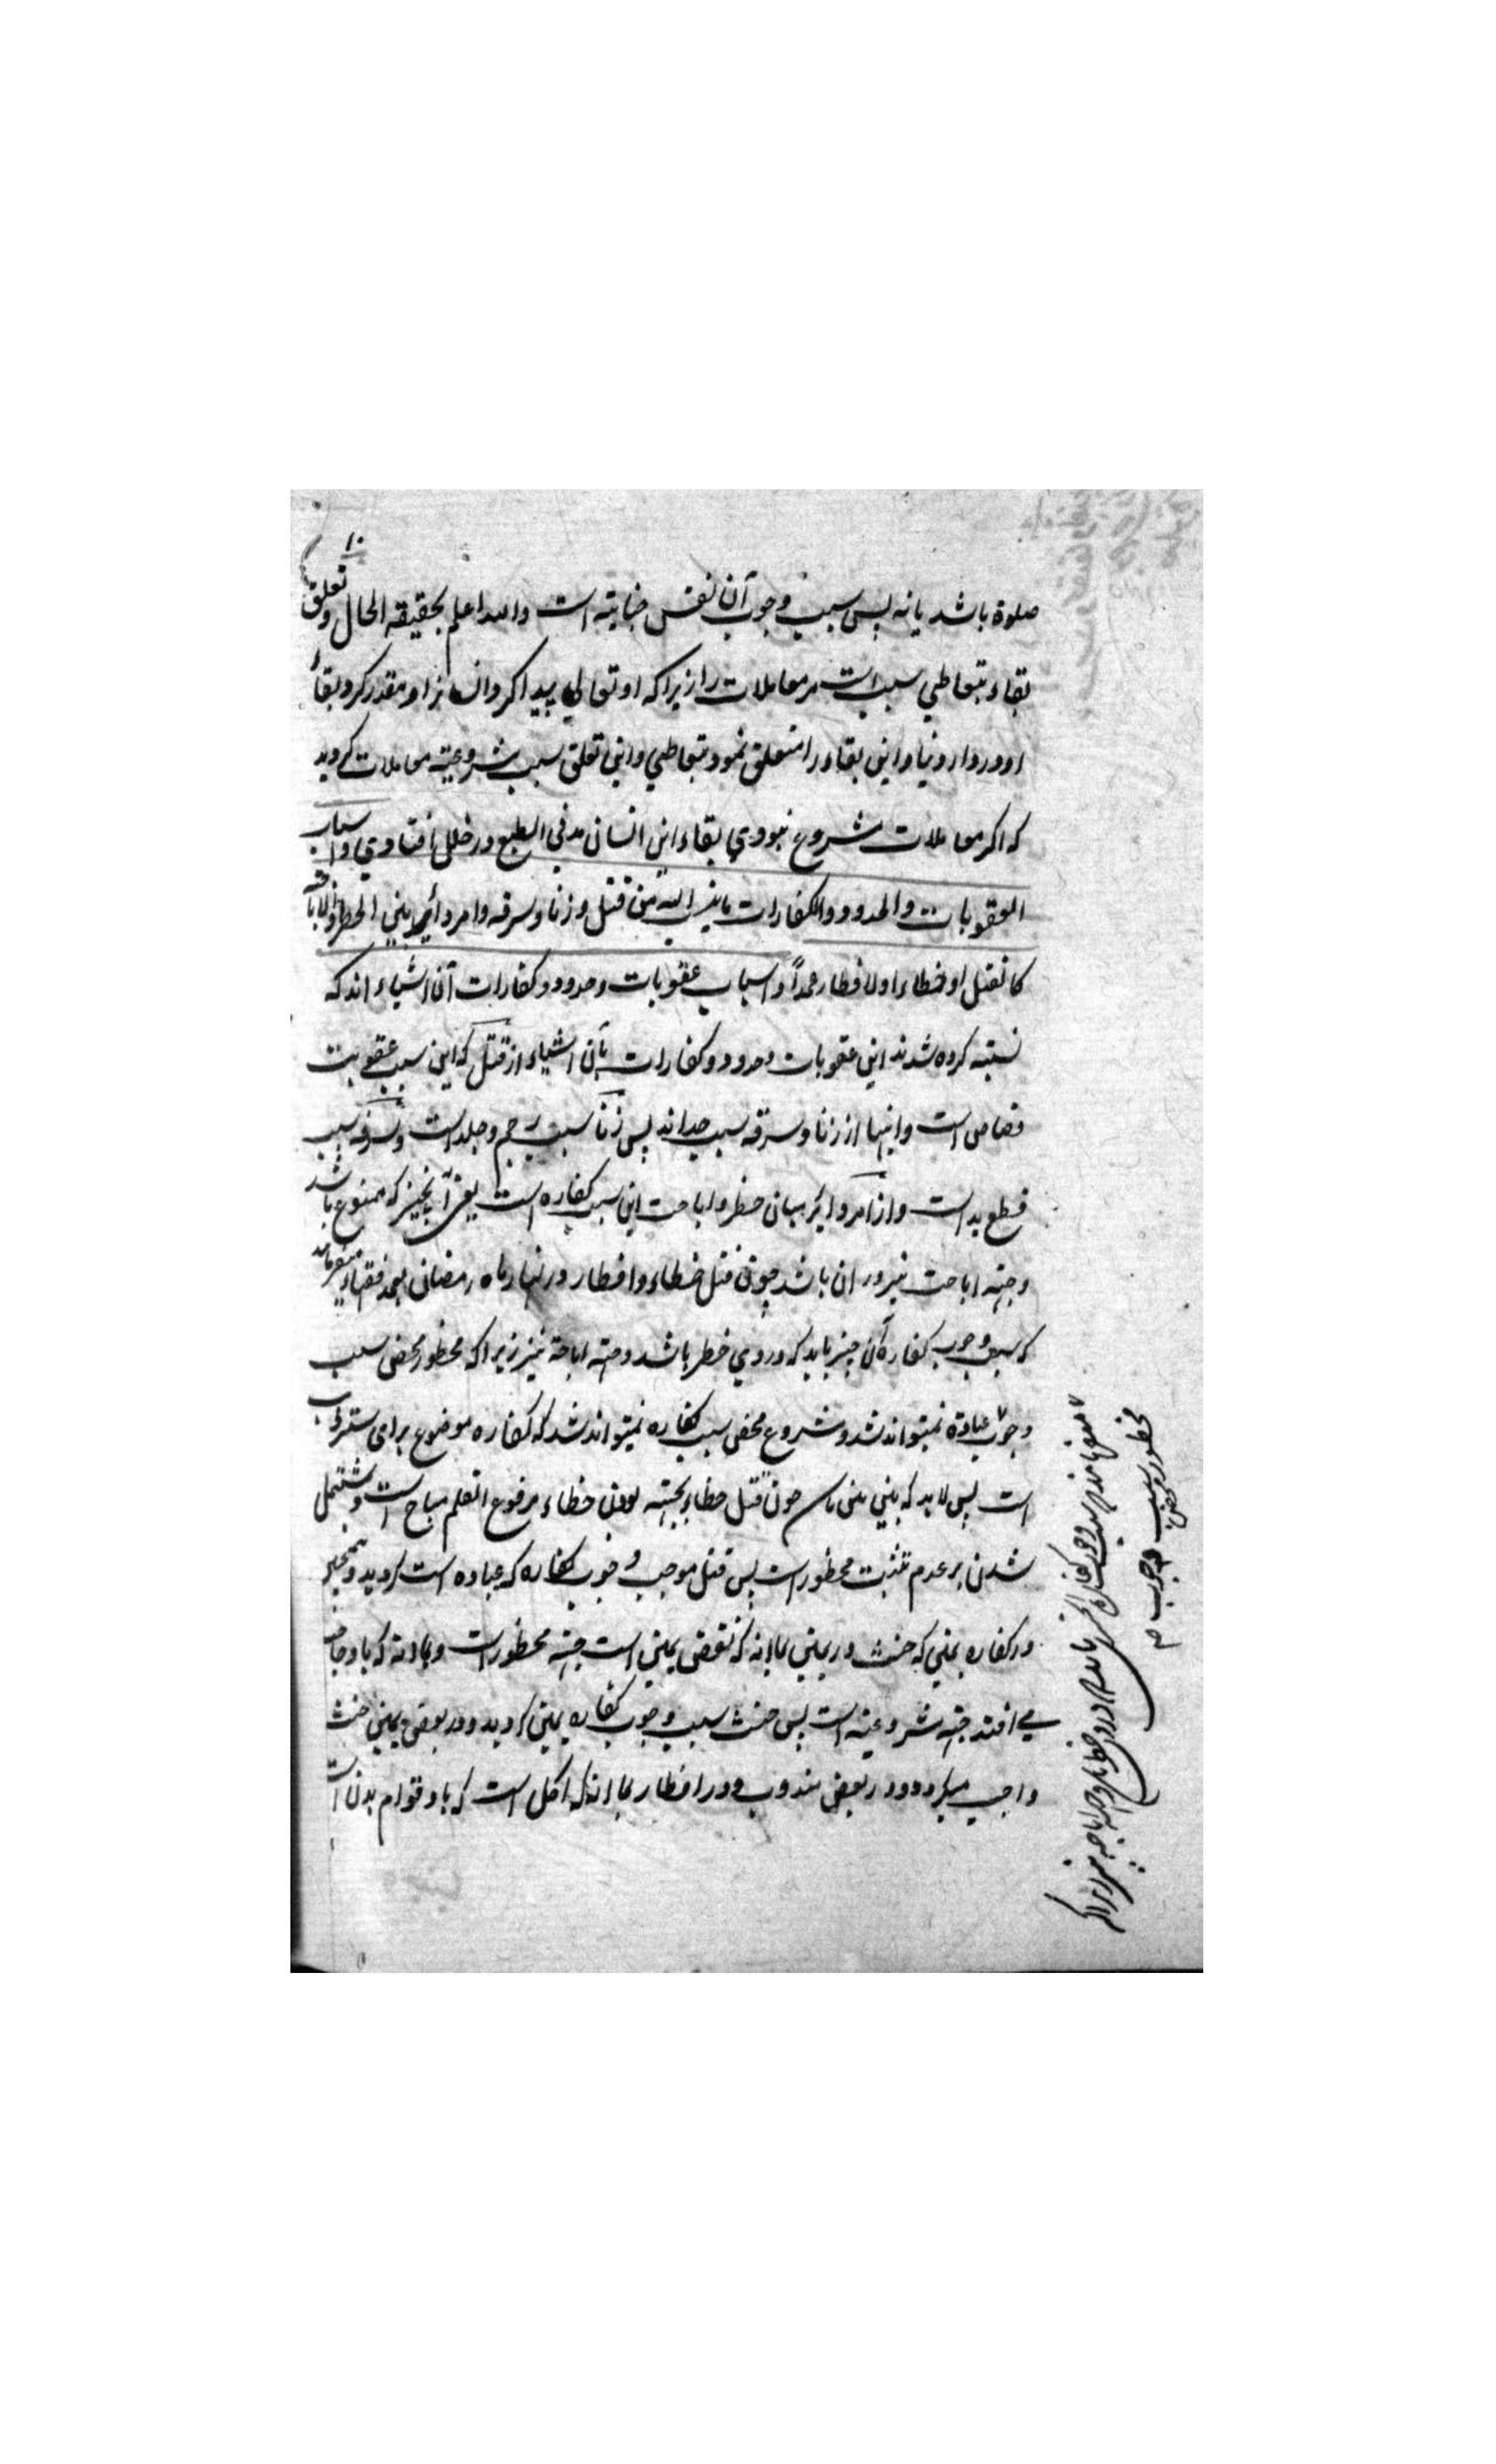 ١٠
صلوة باشد یا نه پس سبب وجوب آن نفس جنایته است والله اعلم بحقیقه الحال وتعلق
بقاء بتعاطی سبب است مر معاملات را زیرا که او تعالی پیدا کرد انسانرا و مقدر کرد بقاء
او در دار دنیا و این بقا را متعلق نمود بتعاطی و این تعلق سبب مشروعیته معاملات گردید
که اکر معاملات مشروع نبودی بقاء این انسان مدنی الطبع در خلل افتادی واسباب
العقوبات والحدود والکفارات ما ینسب الیه من قتل وزنا وسرقه وامر دائر بین الحظر والاباحة
کالقتل خطاء او الافطار عمداً واسباب عقوبات وحدود وکفارات آن اشیاء اند که
نسبته کرده شدند این عقوبات وحدود وکفارات بآن اشیاء از قتل که این سبب عقوبت
قصاص است واینها از زنا وسرقه سبب حد اند پس زنا سبب رجم وجلد است وسرقه سبب
قطع ید است واز امر دائر میان حظر واباحت این سبب کفاره است یعنی آنچیز که ممنوع باشد
وجهته اباحت نیز در ان باشد چون قتل خطاء وافطار در نهار ماه رمضان بعمد فقهاء میفرمایند
که سبب وجوب کفاره آن چیز باید که در وی حظر باشد وجهته اباحة نیز زیرا که محظور محض سبب
وجوب عبادة نمیتواند شد ومشروع محض سبب کفاره نمیتواند شد که کفاره موضوع برای ستر
است پس لابد که بین بین باشد چون قتل خطاء بجهته بودن خطاء مرفوع القلم مباح است ومشتمل
شدن بر عدم تثبت محظور است پس قتل موجب وجوب کفاره که عباده است گردید وهمچنین
در کفاره یمین که حنث در یمین بما انه که نقض یمین است جهته محظور است
می افتد جهته مشروعیته است پس حنث سبب وجوب کفاره یمین گردید ودر بعض یمین حنث
واجب میگردد ودر بعض مندوب ودر افطار بما انه که اکل است که باو قوام بدن است
محظور محض سبب وجوب